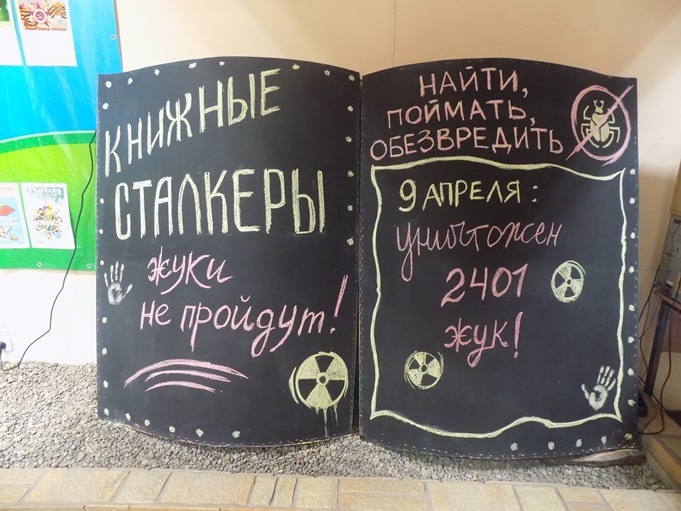 КНИЖНЫЕ
СТАЛКЕРЫ
жуки
не пройдут!
НАЙТИ,
ПОЙМАТЬ,
ОБЕЗВРЕДИТЬ
9 АПРЕЛЯ:
уничтожен
2401
жук!